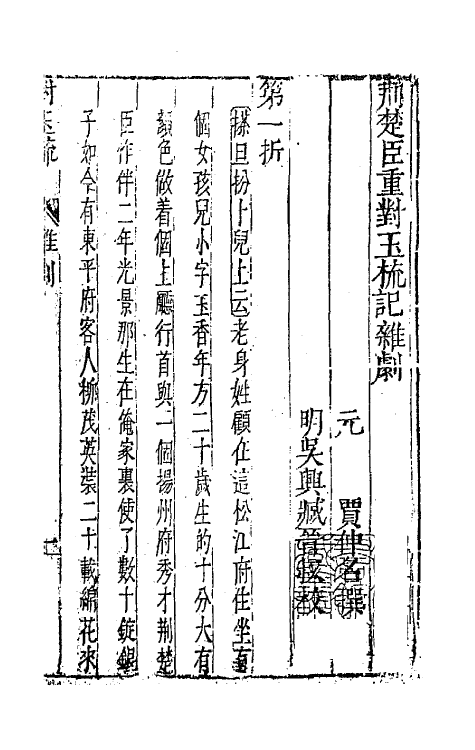 荆楚臣重對玉梳記雜劇
元 賈仲名撰
明吳興臧晉叔校
第一折
搽旦扮卜兒上云老身姓顧在這松江府住坐直
個女孩兒小字玉香年方二十歲生的十分大有
顏色做着個上廳行首與一個揚州府秀才荆楚
臣作伴二年光景那生在俺家裏使了數十錠銀
子如今有東平府客人柳茂英裝二十載綿花來
對玉梳 雜劇 一